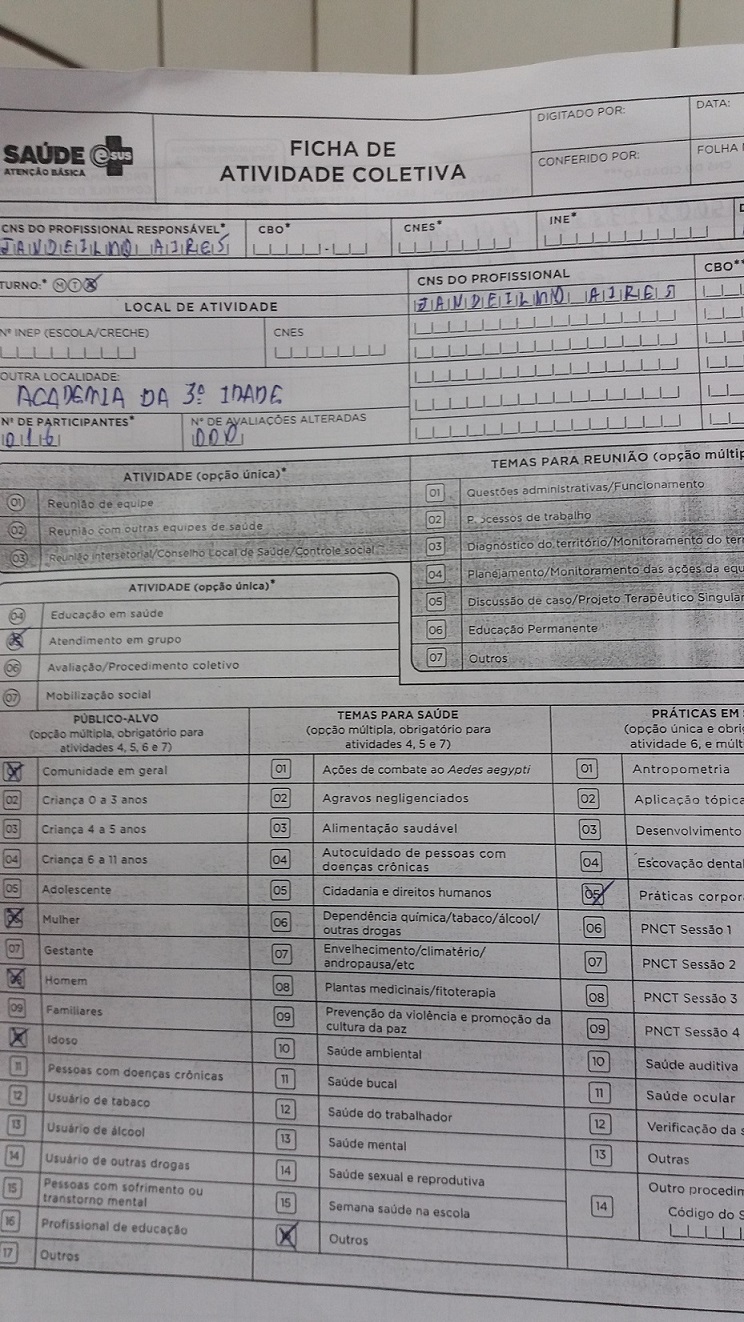 SAÚDE e SUS
ATENÇÃO BÁSICA
FICHA DE
ATIVIDADE COLETIVA
DIGITADO POR:
DATA:
CONFERIDO POR:
FOLHA
CNS DO PROFISSIONAL RESPONSÁVEL*
JANDEILMO AIRES
CBO*
CNES*
INE*
TURNO:* M T
LOCAL DE ATIVIDADE
Nº INEP (ESCOLA/CRECHE)
CNES
OUTRA LOCALIDADE:
ACADEMIA DA 3º IDADE
Nº DE PARTICIPANTES*
016
Nº DE AVALIAÇÕES ALTERADAS
000
CNS DO PROFISSIONAL
CBO**
JANDEILMO AIRES
ATIVIDADE (opção única)*
01 Reunião de equipe
02 Reunião com outras equipes de saúde
03 Reunião intersetorial/Conselho Local de Saúde/Controle social
TEMAS PARA REUNIÃO (opção múltip
01 Questões administrativas/Funcionamento
02 Processos de trabalho
03 Diagnóstico do território/Monitoramento do terr
04 Planejamento/Monitoramento das ações da equ
05 Discussão de caso/Projeto Terapêutico Singular
06 Educação Permanente
07 Outros
ATIVIDADE (opção única)*
04 Educação em saúde
Atendimento em grupo
06 Avaliação/Procedimento coletivo
07 Mobilização social
PÚBLICO-ALVO
(opção múltipla, obrigatório para
atividades 4, 5, 6 e 7)
Comunidade em geral
02 Criança 0 a 3 anos
03 Criança 4 a 5 anos
04 Criança 6 a 11 anos
05 Adolescente
Mulher
07 Gestante
Homem
09 Familiares
Idoso
11 Pessoas com doenças crônicas
12 Usuário de tabaco
13 Usuário de álcool
14 Usuário de outras drogas
15 Pessoas com sofrimento ou
transtorno mental
16 Profissional de educação
17 Outros
TEMAS PARA SAÚDE
(opção múltipla, obrigatório para
atividades 4, 5 e 7)
01 Ações de combate ao Aedes aegypti
02 Agravos negligenciados
03 Alimentação saudável
04 Autocuidado de pessoas com
doenças crônicas
05 Cidadania e direitos humanos
06 Dependência química/tabaco/álcool/
outras drogas
07 Envelhecimento/climatério/
andropausa/etc
08 Plantas medicinais/fitoterapia
09 Prevenção da violência e promoção da
cultura da paz
10 Saúde ambiental
11 Saúde bucal
12 Saúde do trabalhador
13 Saúde mental
14 Saúde sexual e reprodutiva
15 Semana saúde na escola
Outros
PRÁTICAS EM
(opção única e obrig
atividade 6, e múlt
01 Antropometria
02 Aplicação tópica
03 Desenvolvimento
04 Escovação dental
05 Práticas corpor
06 PNCT Sessão 1
07 PNCT Sessão 2
08 PNCT Sessão 3
09 PNCT Sessão 4
10 Saúde auditiva
11 Saúde ocular
12 Verificação da s
13 Outras
14 Outro procedim
Código do S